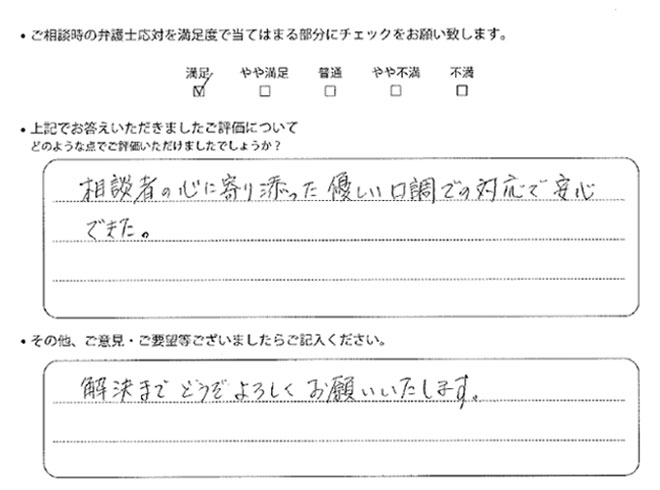 ・ご相談時の弁護士応対を満足度で当てはまる部分にチェックをお願い致します。
満足 やや満足 普通 やや不満 不満
☑ □ □ □ □
・上記でお答えいただきましたご評価について
どのような点でご評価いただけましたでしょうか？
相談者の心に寄り添った優しい口調での対応で安心
できた。
・その他、ご意見・ご要望等ございましたらご記入ください。
解決までどうぞよろしくお願いいたします。